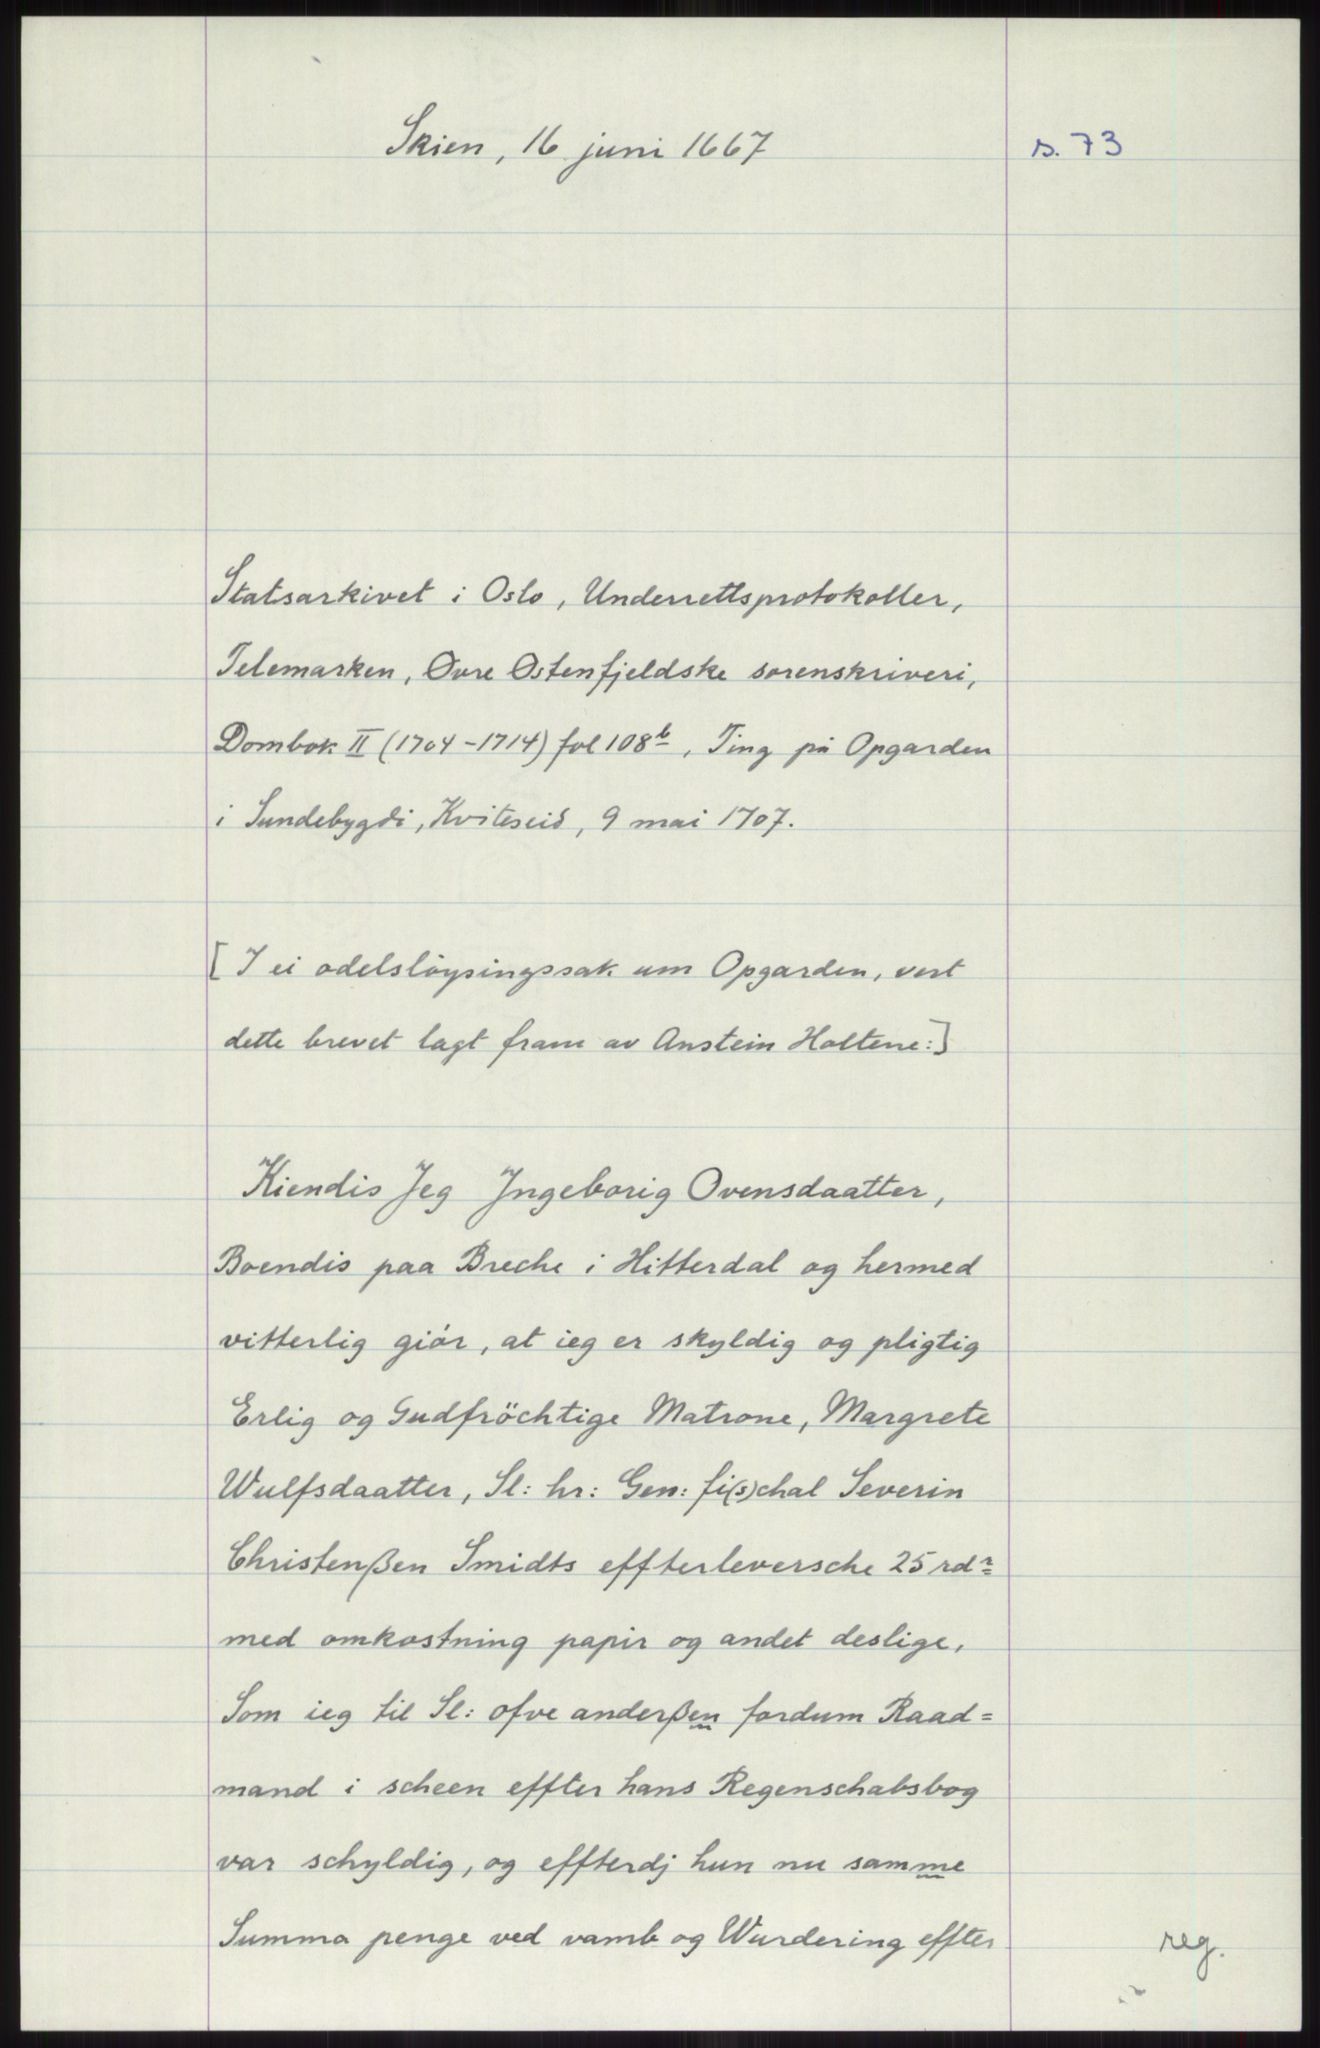 Skien, 16 juni 1667
s. 73
Statsarkivet i Oslo, Underrettsprotokoller,
Telemarken, Øvre Østenfjeldske sorenskriveri,
Dombok II (1704-1714) fol 108b, Ting på Opgarden
i Sundebygdi, Kviteseid, 9 mai 1707.
[I ei odelsløysingssak um Opgarden, vert
dette brevet lagt fram av AnsteinHoltene:]
Kiendis Jeg Jngeborig Ovensdaatter,
Boendis paa Breche i Hitterdal og hermed
vitterlig giör, at ieg er skyldig og pligtig
Erlig og Gudfröchtige Matrone, Margrete
Wulfsdaatter, Sl: hr: Gen: fi(s)chal Severin
Christenßen Smidts effterleversche 25 rdr
med omkostning papir og andet deslige,
Som ieg til Sl: ofve anderßen fordum Raad=
mand i scheen effter hans Regenschabsbog
var schyldig, og effterdj hun nu samme
Summa penge ved vamb og Wurdering effter
reg.